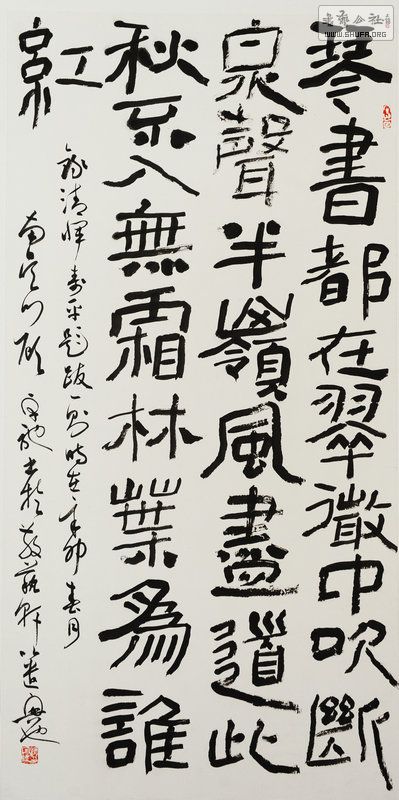 琴書都在翠微中吹斷
泉聲半嶺風盡道此
秋不入無霜林葉為誰
紅
錄清惲壽平題跋一則時在辛卯春月
書於
WWW.SHUFA.ORG